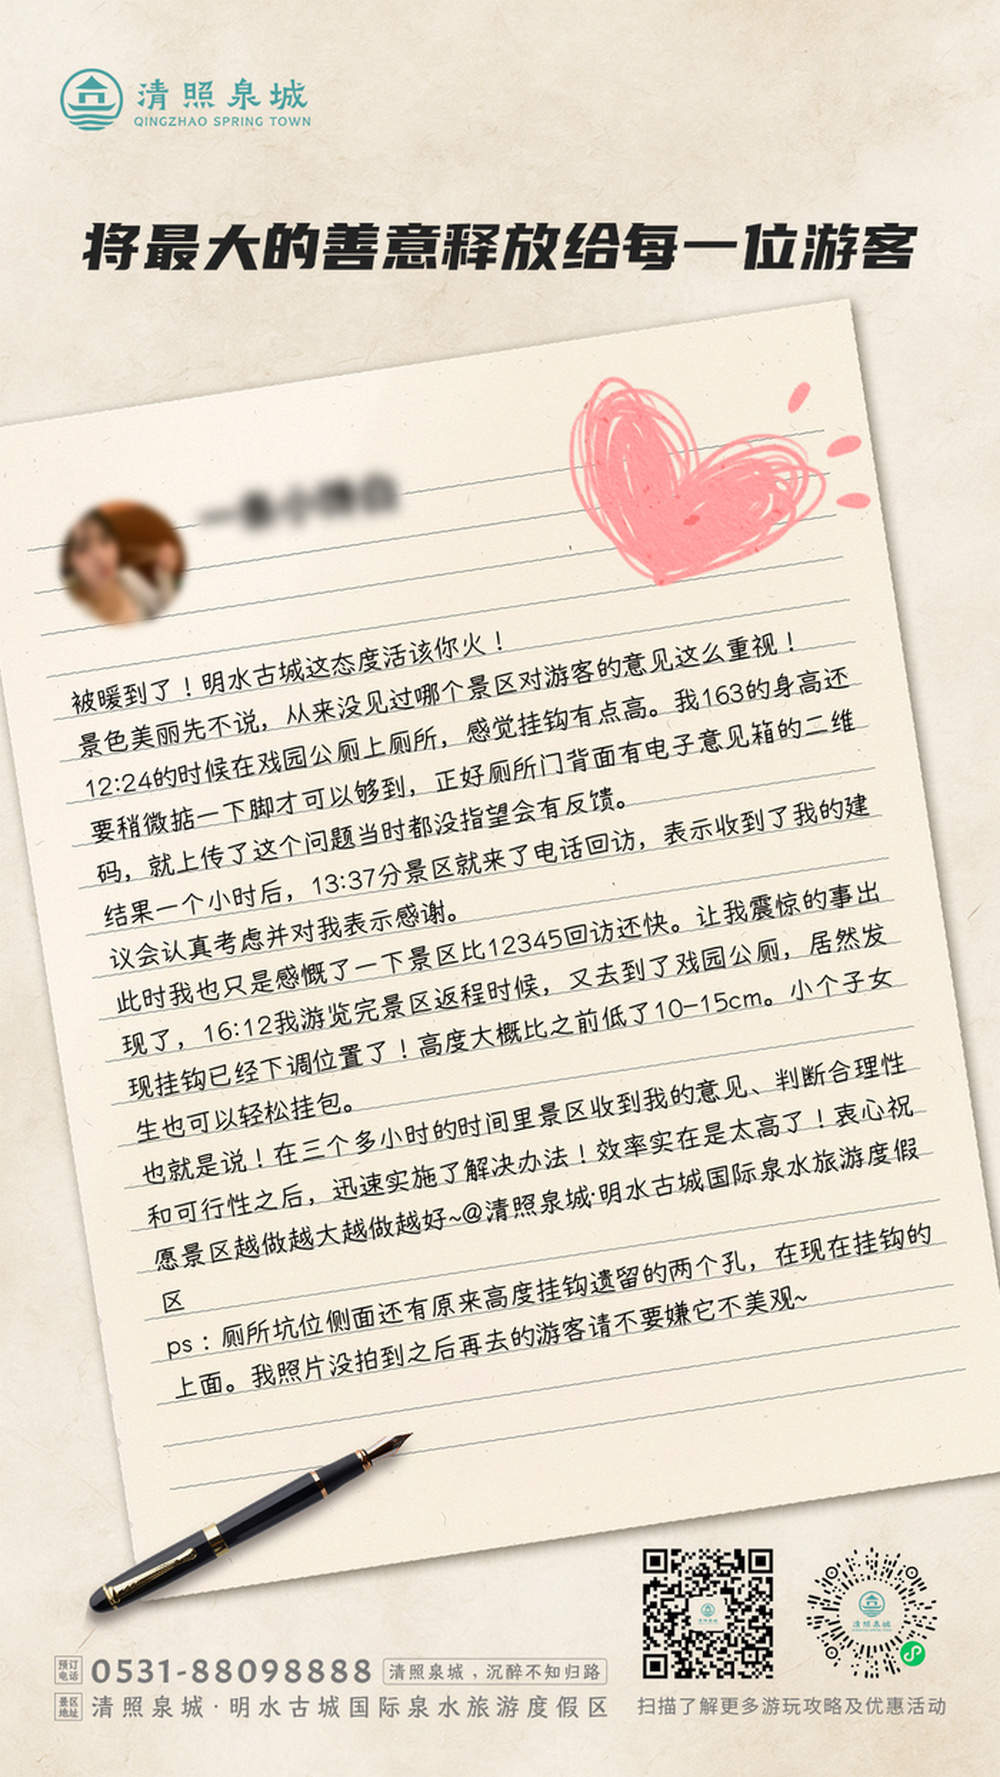 清照泉城
QINGZHAO SPRING TOWN
将最大的善意释放给每一位游客
被暖到了！明水古城这态度活该你火！
景色美丽先不说，从来没见过哪个景区对游客的意见这么重视！
12:24的时候在戏园公厕上厕所，感觉挂钩有点高。我163的身高还
要稍微掂一下脚才可以够到，正好厕所门背面有电子意见箱的二维
码，就上传了这个问题当时都没指望会有反馈。
结果一个小时后，13:37分景区就来了电话回访，表示收到了我的建
议会认真考虑并对我表示感谢。
此时我也只是感慨了一下景区比12345回访还快。让我震惊的事出
现了，16:12我游览完景区返程时候，又去到了戏园公厕，居然发
现挂钩已经下调位置了！高度大概比之前低了10-15cm。小个子女
生也可以轻松挂包。
也就是说！在三个多小时的时间里景区收到我的意见、判断合理性
和可行性之后，迅速实施了解决办法！效率实在是太高了！衷心祝
愿景区越做越大越做越好~@清照泉城·明水古城国际泉水旅游度假
区
ps：厕所坑位侧面还有原来高度挂钩遗留的两个孔，在现在挂钩的
上面。我照片没拍到之后再去的游客请不要嫌它不美观~
预订电话 0531-88098888 清照泉城，沉醉不知归路
景区地址 清照泉城·明水古城国际泉水旅游度假区
扫描了解更多游玩攻略及优惠活动